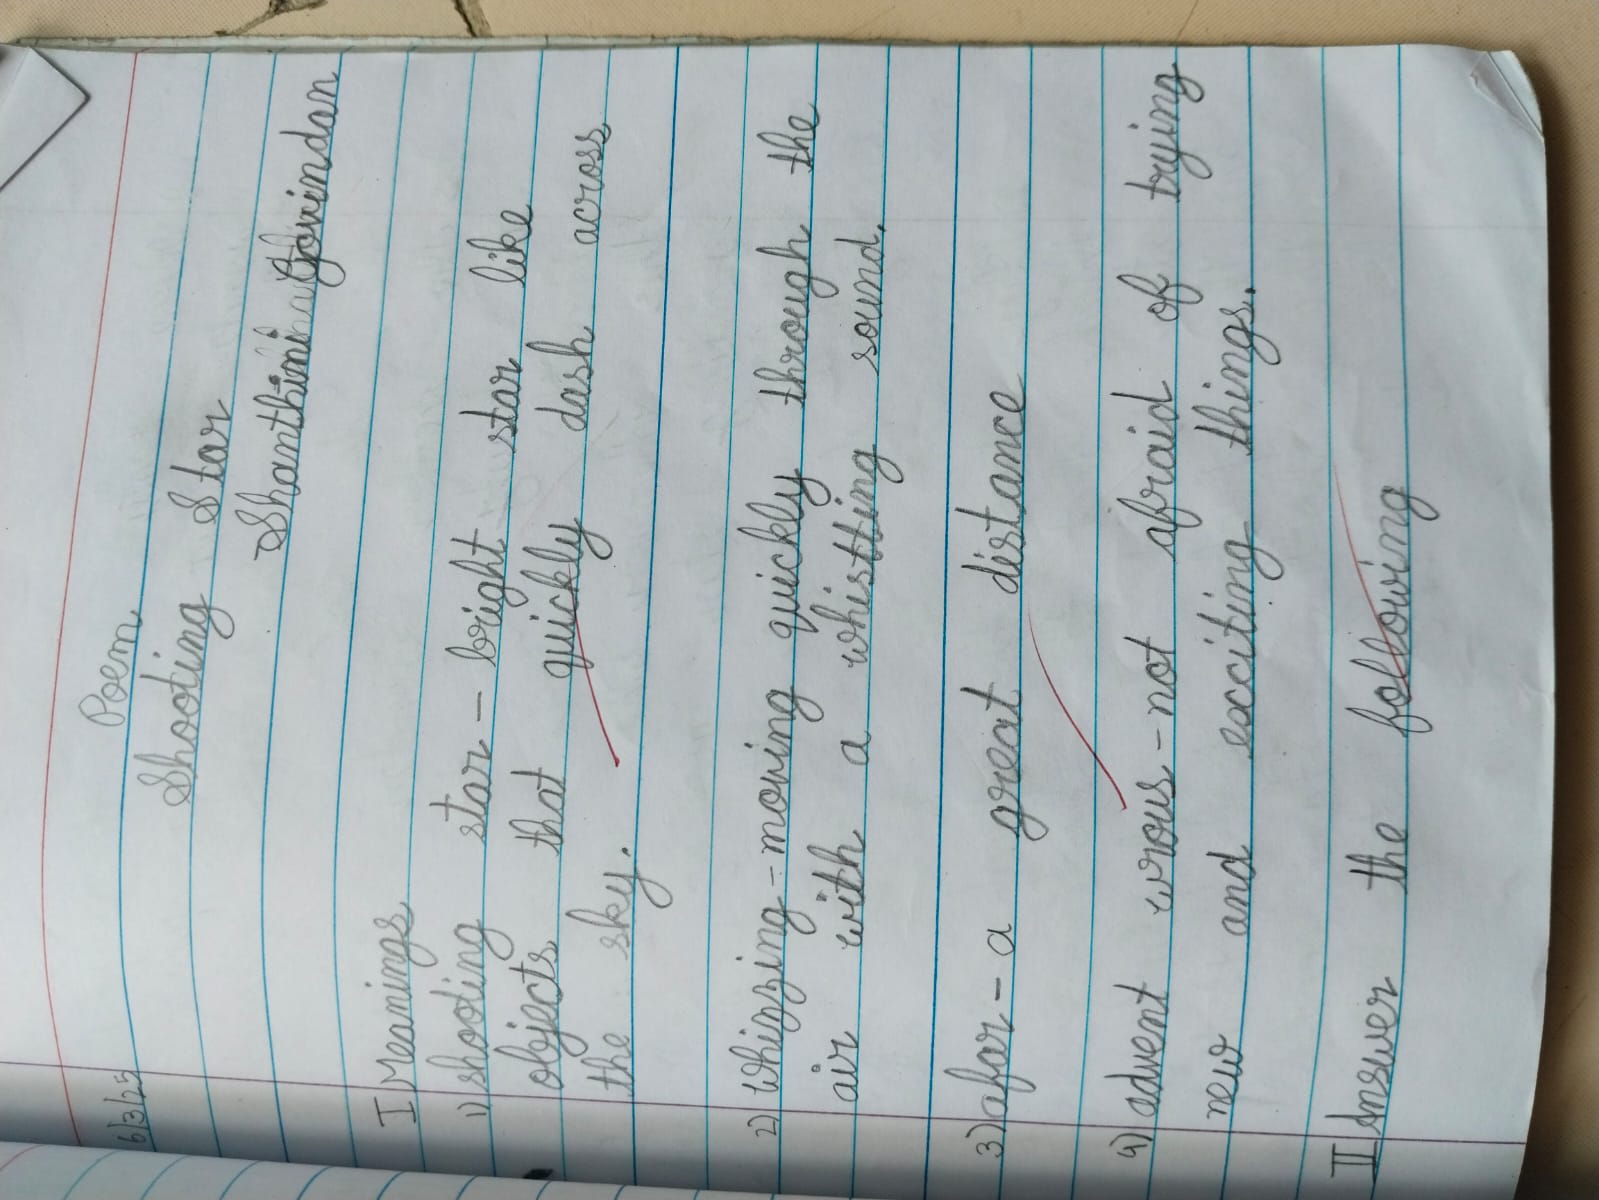 Poem
6/3/25
Shooting Star
Shanthini Govindan
I Meanings
1) shooting star - bright star like
objects that quickly dash across
the sky.
2) whizzing - moving quickly through the
air with a whistting sound.
3) afar - a great distance
4) advent urous - not afraid of trying
new and exciting things.
II Answer the following